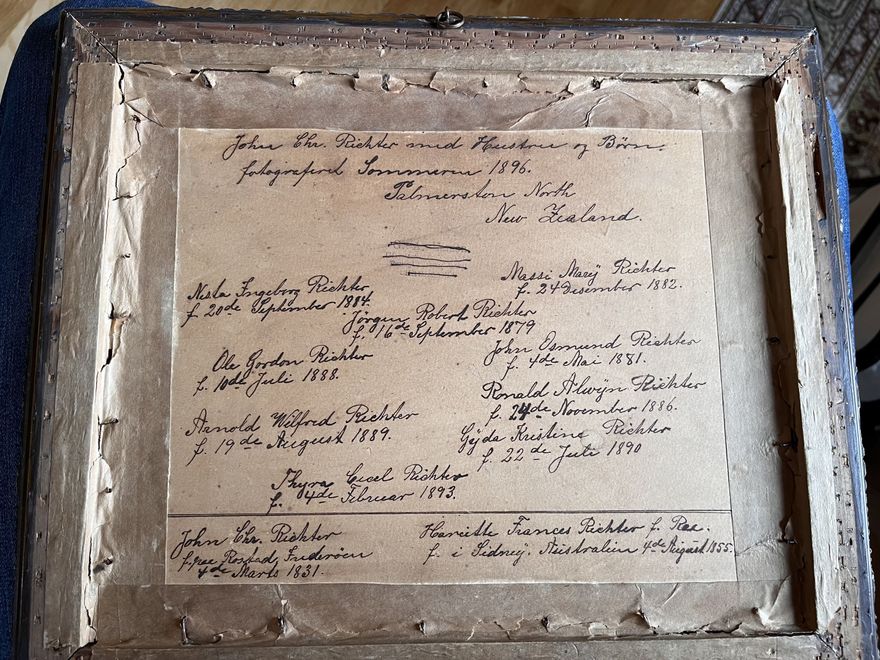 John Chr. Richter med Hustru og Børn.
fotograferet Sommeren 1896.
Palmerston North
New Zealand.
Massi Marÿ Richter
f. 24 Desember 1882.
Nesta Ingeborg Richter
f. 20de September 1884.
Jörgen Robert Richter
f. 16de September 1879
John Osmund Richter
f. 4de Mai 1881.
Ole Gordon Richter
f. 10de Juli 1888.
Ronald Alwÿn Richter
f. 24de November 1886.
Arnold Wilfred Richter
f. 19de August 1889.
Gÿda Kristine Richter
f. 22de 1890
Thyra Cecel Richter
f. 4de Februar 1893.
John Chr. Richter
f. paa Rostad, Inderöen
4de Marts 1831.
Harriette Frances Richter f. Rae.
f. i Sidneÿ. Australien 4de August 1855.